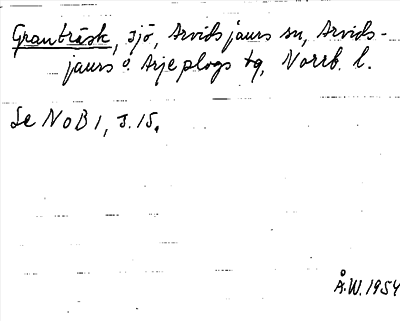 Granträsk, sjö, Arvidsjaurs sn, Arvids-
jaurs o. Arjeplogs tg, Norrb. l.
Se NoB 1, s. 15.
Å.W. 1954